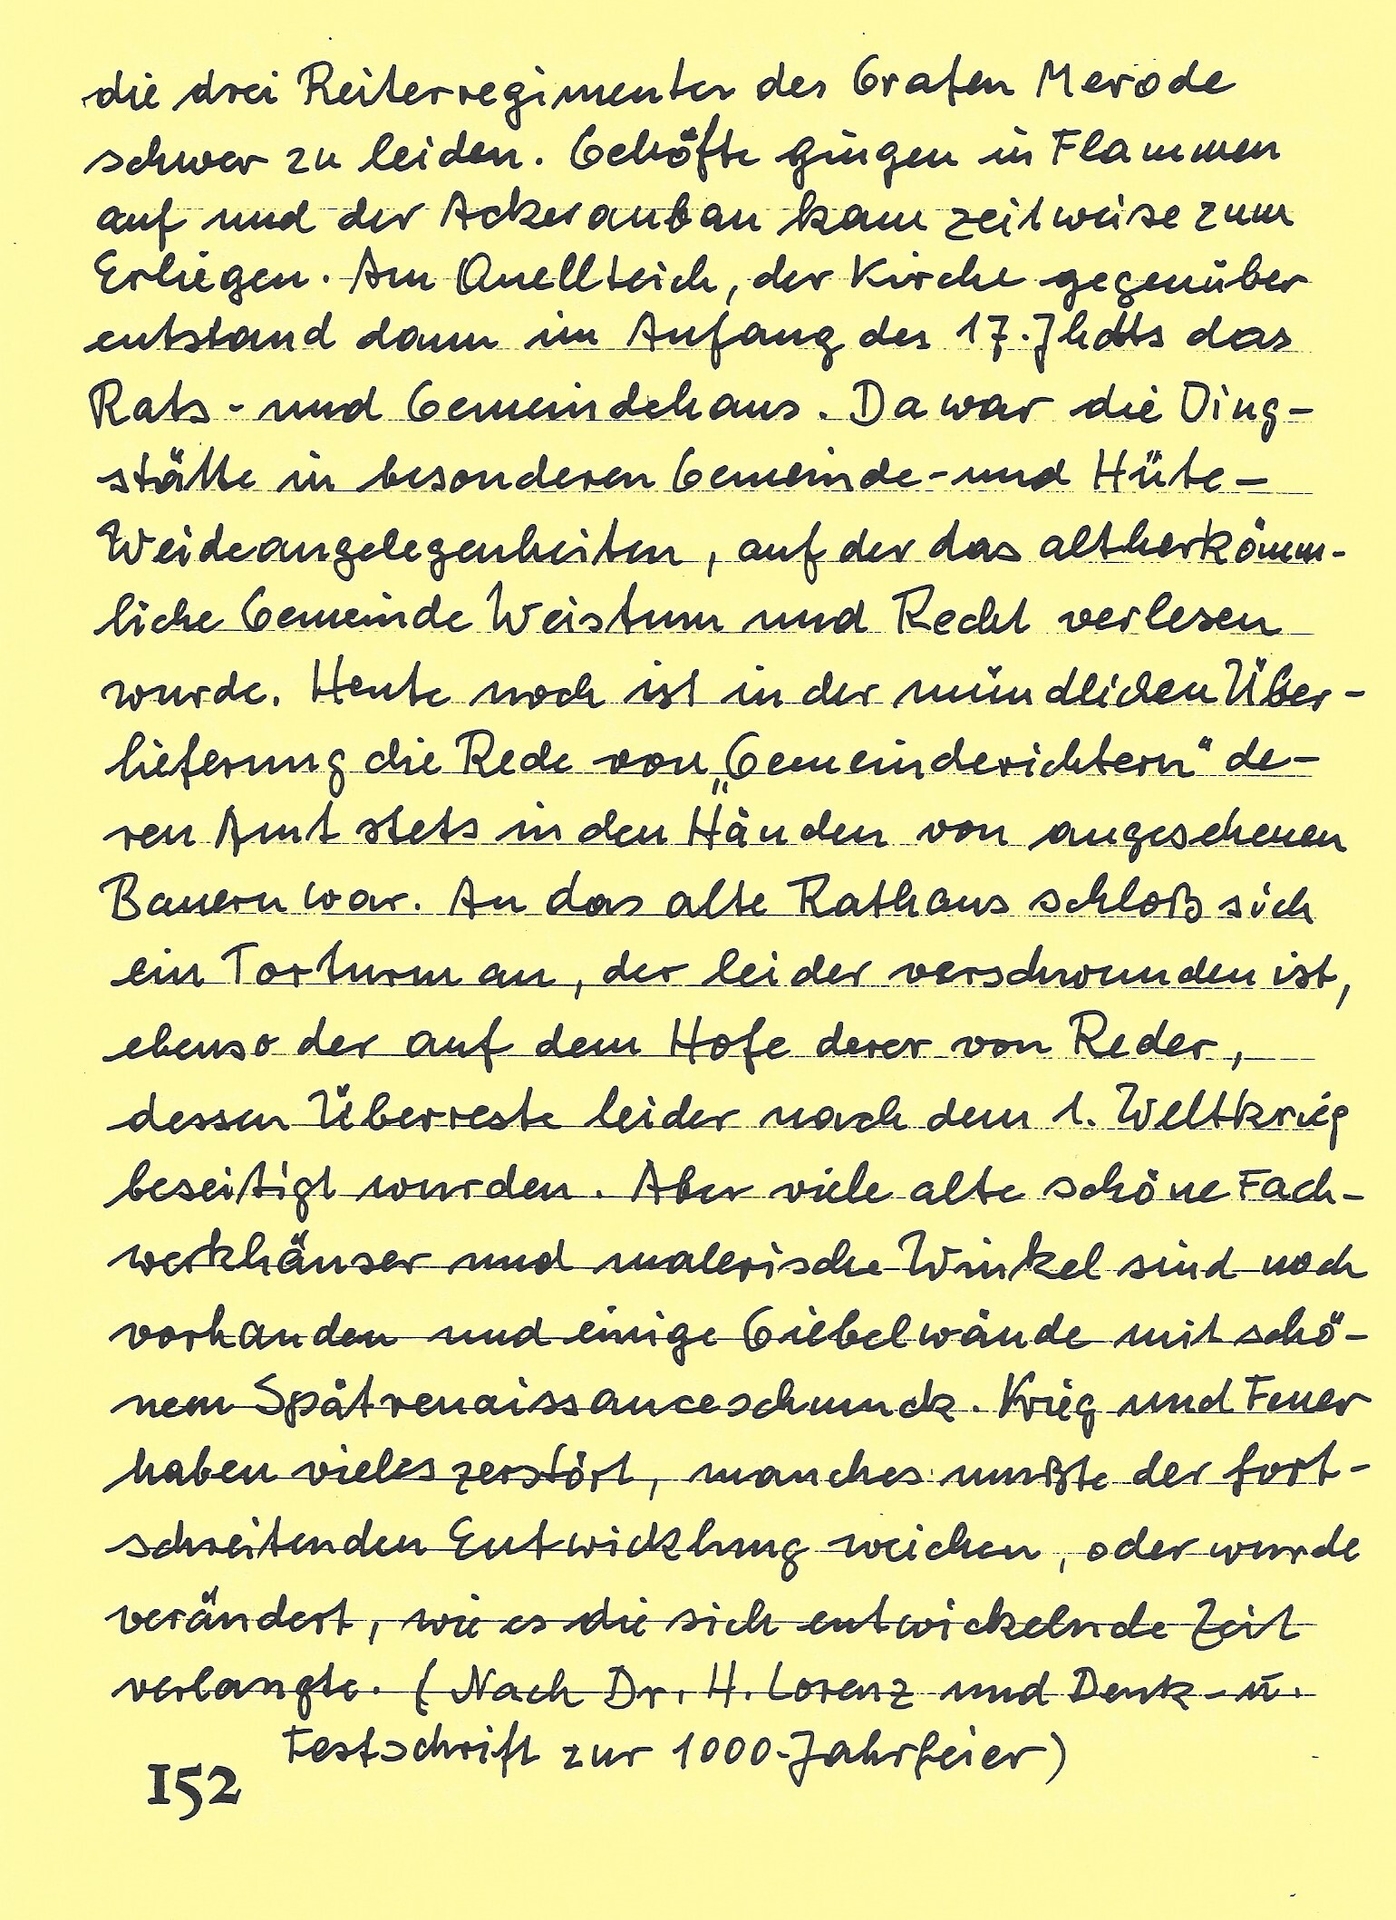 die drei Reiterregimenter des Grafen Merode
schwer zu leiden. Gehöfte gingen in Flammen
auf und der Ackeranbau kam zeitweise zum
Erliegen. Am Quellteich, der Kirche gegenüber
entstand dann im Anfang des 17. Jhdts das
Rats- und Gemeindehaus. Da war die Ding-
stätte in besonderen Gemeinde- und Hüte-
Weideangelegenheiten, auf der das altherkömm-
liche Gemeinde Weistum und Recht verlesen
wurde. Heute noch ist in der mündlichen Über-
lieferung die Rede von „Gemeinderichtern“ de-
ren Amt stets in den Händen von angesehenen
Bauern war. An das alte Rathaus schloß sich
ein Torturm an, der leider verschwunden ist,
ebenso der auf dem Hofe derer von Reder,
dessen Überreste leider nach dem 1. Weltkrieg
beseitigt wurden. Aber viele alte schöne Fach-
werkhäuser und malerische Winkel sind noch
vorhanden und einige Giebelwände mit schö-
nem Spätrenaissanceschmuck. Krieg und Feuer
haben vieles zerstört, manches mußte der fort-
schreitenden Entwicklung weichen, oder wurde
verändert, wie es die sich entwickelnde Zeit
verlangte. (Nach Dr. H. Lorenz und Denk- u.
Festschrift zur 1000-Jahrfeier)
152